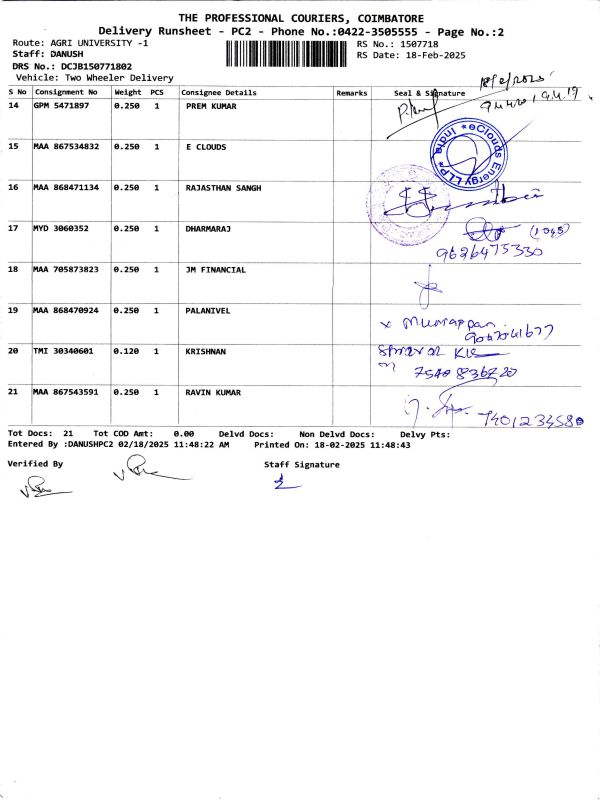 THE PROFESSIONAL COURIERS, COIMBATORE
Delivery Runsheet - PC2 - Phone No.:0422-3505555 - Page No.:2
Route: AGRI UNIVERSITY -1
RS No.: 1507718
Staff: DANUSH
RS Date: 18-Feb-2025
DRS No.: DCJB150771802
Vehicle: Two Wheeler Delivery
18/2/2025
S No Consignment No Weight PCS Consignee Details Remarks Seal & Signature
14 GPM 5471897 0.250 1 PREM KUMAR
15 MAA 867534832 0.250 1 E CLOUDS
eClouds Energy LLP * India *
16 MAA 868471134 0.250 1 RAJASTHAN SANGH
17 MYD 3060352 0.250 1 DHARMARAJ
9626475330
18 MAA 705873823 0.250 1 JM FINANCIAL
19 MAA 868470924 0.250 1 PALANIVEL
20 TMI 30340601 0.120 1 KRISHNAN
7540836720
21 MAA 867543591 0.250 1 RAVIN KUMAR
7401234580
Tot Docs: 21 Tot COD Amt: 0.00 Delvd Docs: Non Delvd Docs: Delvy Pts:
Entered By :DANUSHPC2 02/18/2025 11:48:22 AM Printed On: 18-02-2025 11:48:43
Verified By Staff Signature